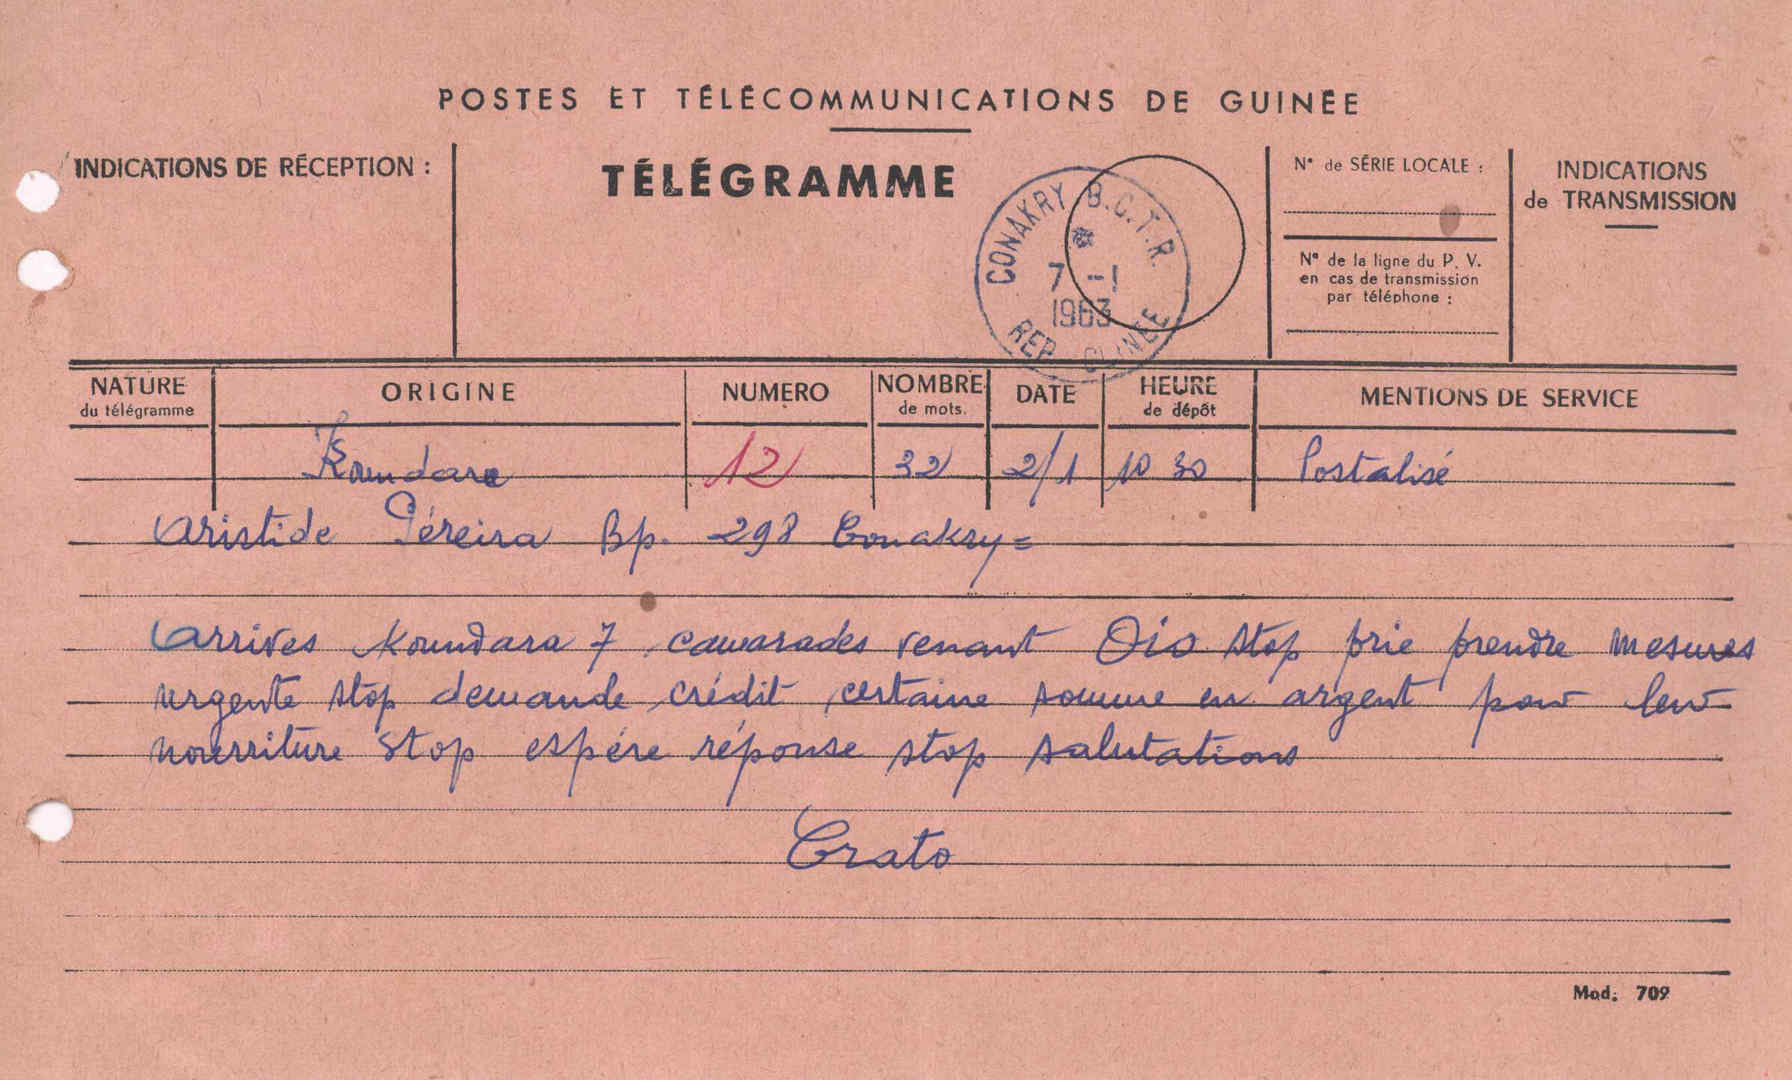 POSTES ET TÉLÉCOMMUNICATIONS DE GUINÉE
INDICATIONS DE RÉCEPTION :
TÉLÉGRAMME
CONAKRY B.C.T.R.
7 -1
1963
REP. GUINEE
N° de SÉRIE LOCALE :
N° de la ligne du P. V.
en cas de transmission
par téléphone :
INDICATIONS
de TRANSMISSION
NATURE
du télégramme
ORIGINE
NUMERO
NOMBRE
de mots.
DATE
HEURE
de dépôt
MENTIONS DE SERVICE
Koundara 12 32 2/1 10 30 Postalisé
Aristide Péreira Bp. 298 Conakry=
Arrives Koundara 7 camarades venant Oio stop prie prendre mesures
urgente stop demande crédit certaine somme en argent pour leur
nourriture stop espère réponse stop salutations
Crato
Mod. 709